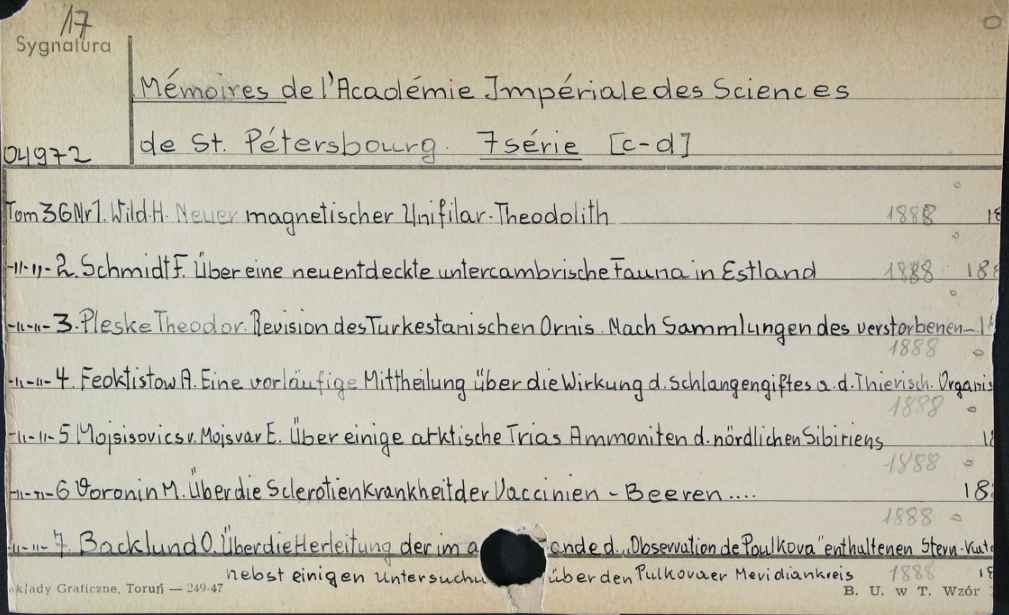 17
Sygnatura
Mémoires de l'Académie Impériale des Sciences
de St. Pétersbourg. 7 série [c-d]
04972
Tom 36 Nr 1. Wild H. Neuer magnetischer Unifilar-Theodolith 1888 18
-"-"- 2. Schmidt F. Über eine neuentdeckte untercambrische Fauna in Estland 1888 188
-"-"- 3. Pleske Theodor. Revision des Turkestanischen Ornis. Nach Sammlungen des verstorbenen 1
1888
-"-"- 4. Feoktistow A. Eine vorläufige Mittheilung über die Wirkung d. Schlangengiftes a. d. Thierisch. Organis
1888
-"-"- 5 Mojsisovics v. Mojsvar E. Über einige arktische Trias Ammoniten d. nördlichen Sibiriens 18
1888
-"-"- 6 Voronin M. Über die Sclerotienkrankheit der Vaccinien - Beeren .... 18
1888
-"-"- 7. Backlund O. Über die Herleitung der im a ande d. „Observation de Poulkova" enthaltenen Stern-Kata
nebst einigen Untersuchu über den Pulkovaer Meridiankreis 1888 18
akłady Graficzne, Toruń — 249-47 B. U. w T. Wzór